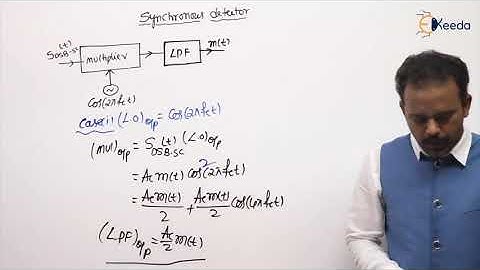 Synchronous detector
Ekeeda
S_DSB-SC(t)
multiplier
LPF
m(t)
Cos(2πfct)
Case i) (L.O)o/p = Cos(2πfct)
(mul)o/p = S_DSB-SC(t) (L.O)o/p
= Ac m(t) cos²(2πfct)
= Ac m(t)/2 + Ac m(t)/2 cos(4πfct)
(LPF)o/p = Ac/2 m(t)